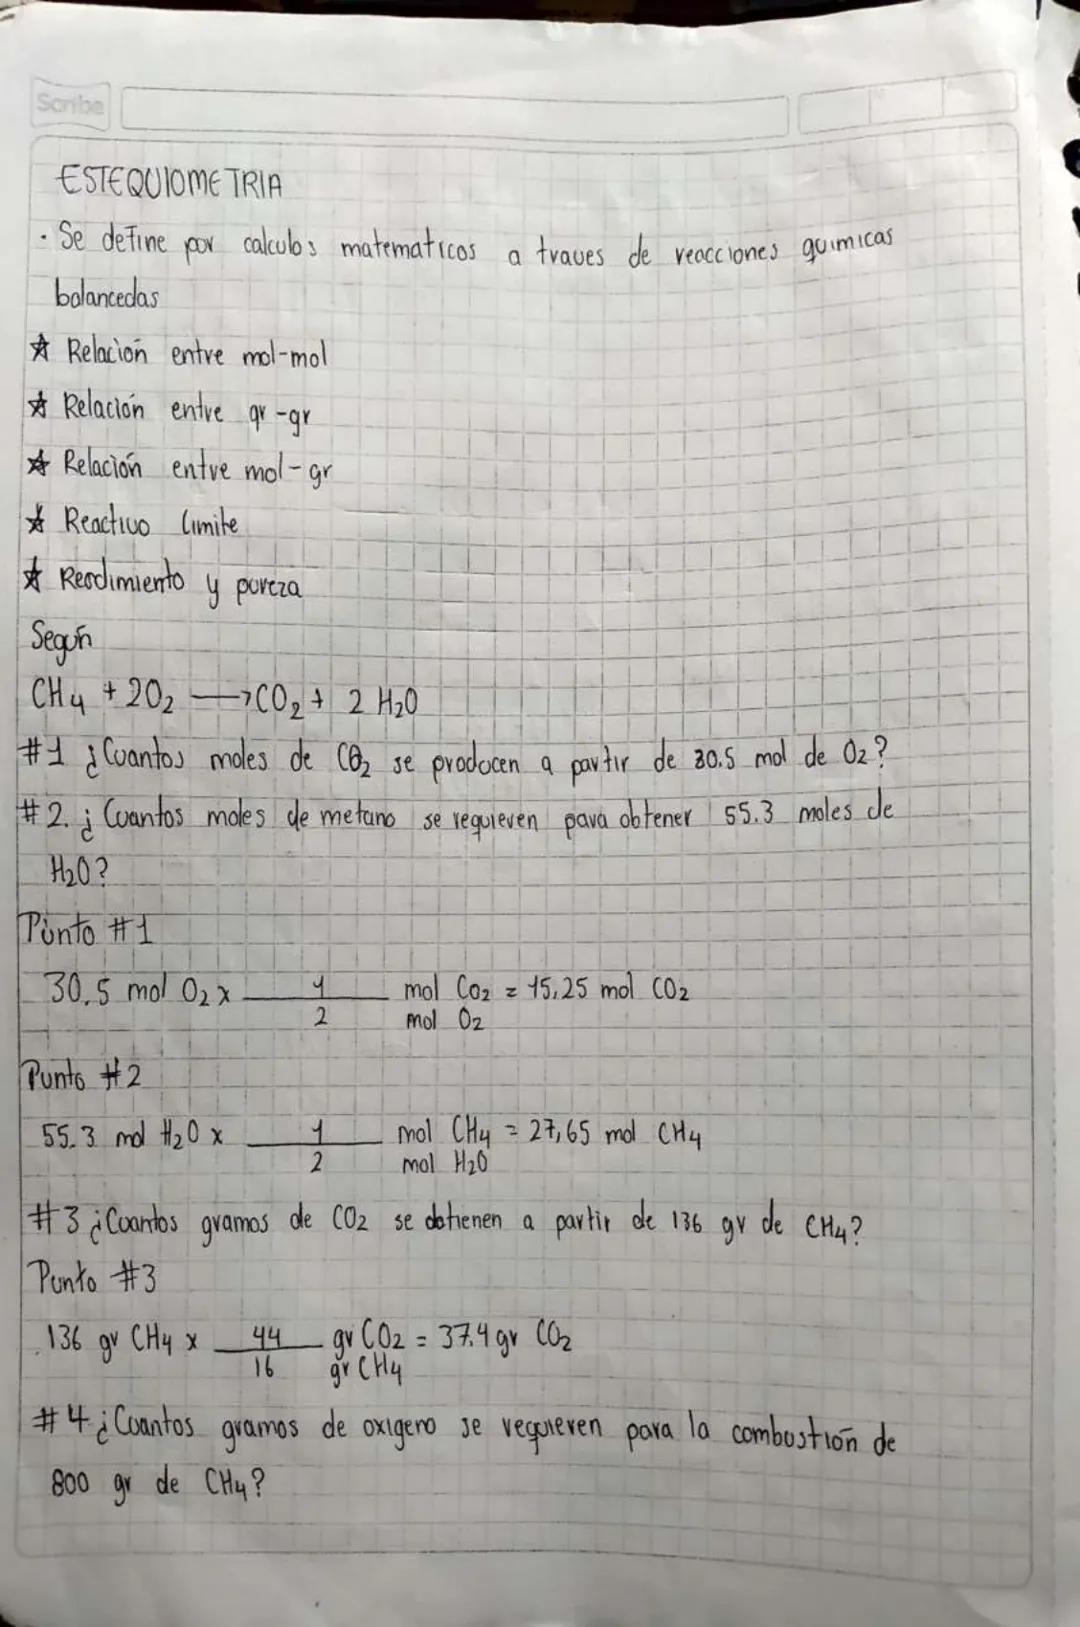 Scribe
ESTEQUIOMETRIA
· Se define por calculos matematicos a traves de reacciones quimicas
balancedas
☆ Relación entre mol-mol
☆ Relación entre gr-gr
☆ Relación entre mol-gr
☆ Reactivo limite
☆ Rendimiento y pureza
Según
CH4 + 2O2 → CO2 + 2 H2O
#1 ¿Cuantos moles de CO2 se producen a partir de 30.5 mol de O2?
#2. ¿Cuantos moles de metano se requieren para obtener 55.3 moles de
H2O?
Punto #1
30.5 mol O2 x 1 mol CO2 = 15,25 mol CO2
2 mol O2
Punto #2
55.3 mol H2O x 1 mol CH4 = 27,65 mol CH4
2 mol H2O
#3 ¿Cuantos gramos de CO2 se obtienen a partir de 136 gr de CH4?
Punto #3
136 gr CH4 x 44 gr CO2 = 37.4 gr CO2
16 gr CH4
#4 ¿Cuantos gramos de oxigeno se requieren para la combustión de
800 gr de CH4?